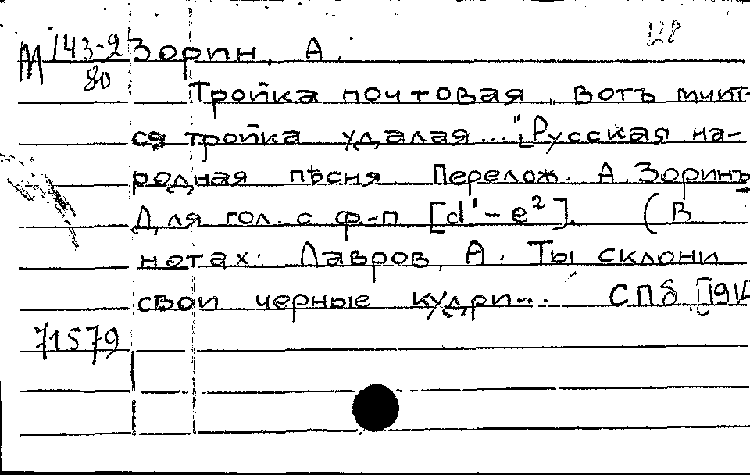 М 143-2 Зорин, А.
80
Тройка почтовая „Вотъ мчит-
ся тройка удалая..." [Русская на-
родная пѣсня Перелож. А. Зоринъ
Для гол. с ф-п [d¹-e²]. (В
нотах: Лавров, А. Ты склони
свои черные кудри... СПб [191
71579